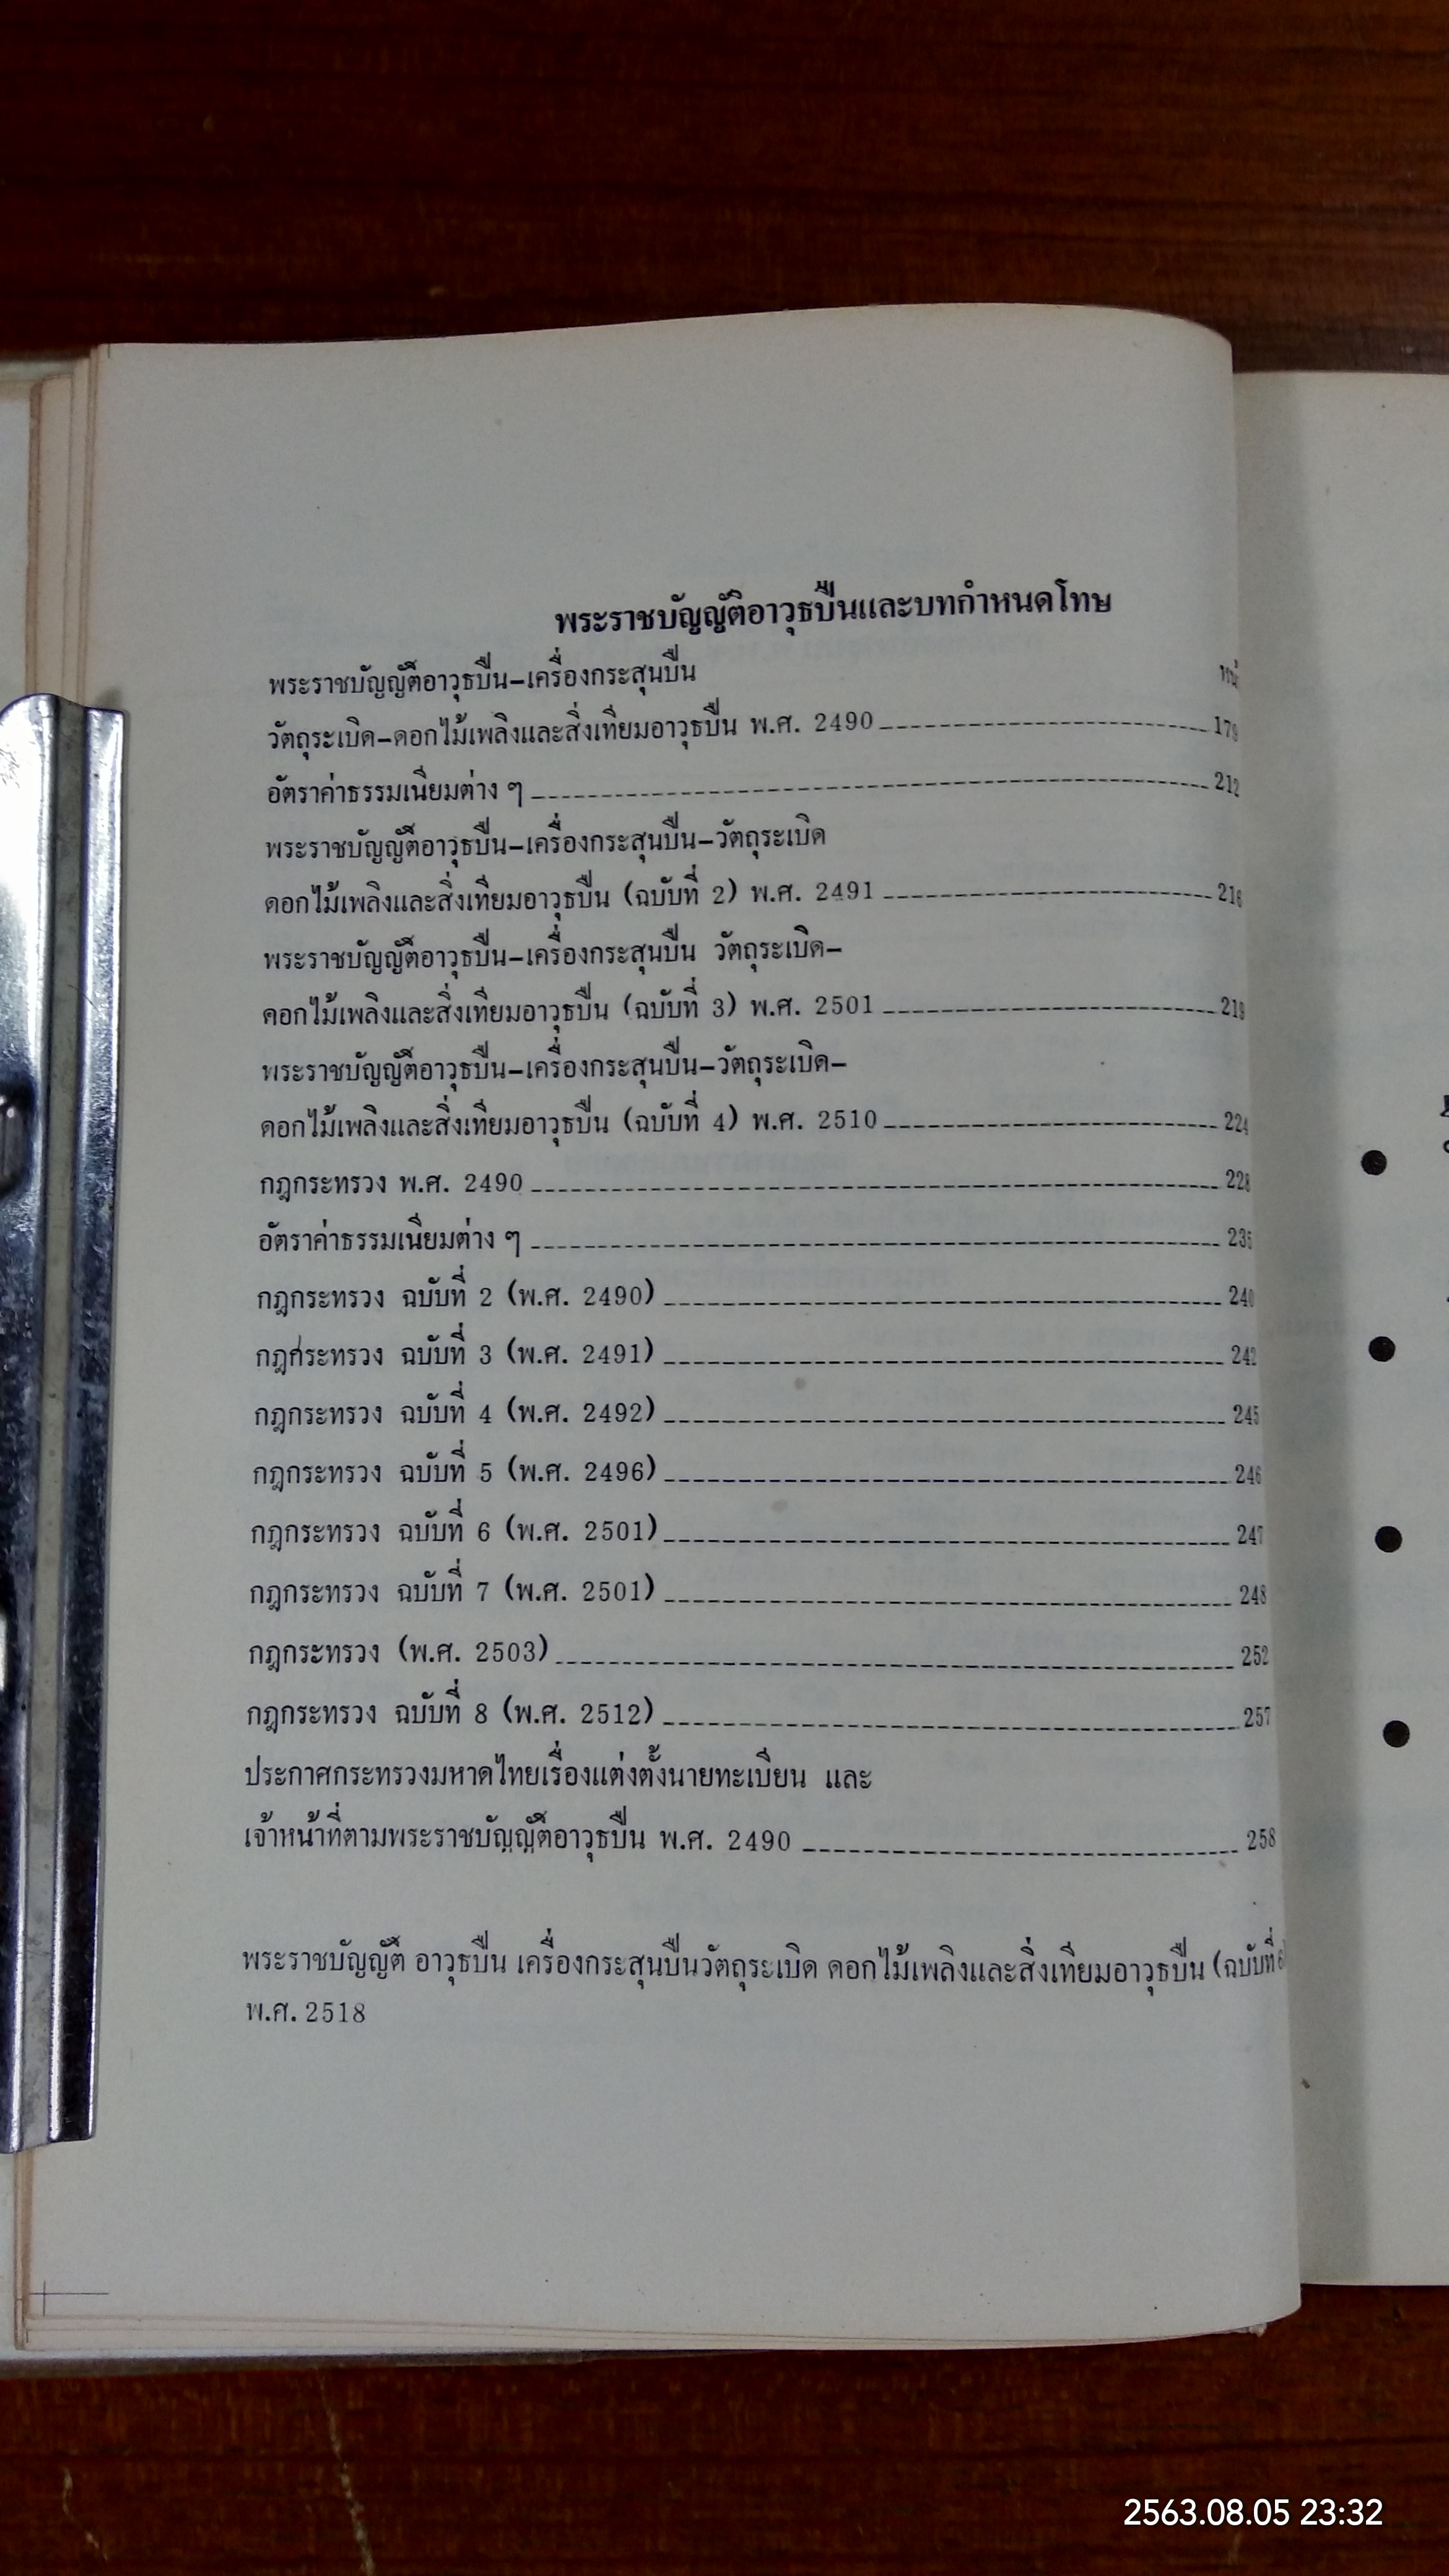 พระราชบัญญัติอาวุธปืนและบทกำหนดโทษ
พระราชบัญญัติอาวุธปืน–เครื่องกระสุนปืน
วัตถุระเบิด–ดอกไม้เพลิงและสิ่งเทียมอาวุธปืน พ.ศ. 2490
อัตราค่าธรรมเนียมต่าง ๆ 212
พระราชบัญญัติอาวุธปืน–เครื่องกระสุนปืน–วัตถุระเบิด
ดอกไม้เพลิงและสิ่งเทียมอาวุธปืน (ฉบับที่ 2) พ.ศ. 2491
พระราชบัญญัติอาวุธปืน–เครื่องกระสุนปืน วัตถุระเบิด–
ดอกไม้เพลิงและสิ่งเทียมอาวุธปืน (ฉบับที่ 3) พ.ศ. 2501
พระราชบัญญัติอาวุธปืน–เครื่องกระสุนปืน–วัตถุระเบิด–
ดอกไม้เพลิงและสิ่งเทียมอาวุธปืน (ฉบับที่ 4) พ.ศ. 2510 224
กฎกระทรวง พ.ศ. 2490 228
อัตราค่าธรรมเนียมต่าง ๆ 235
กฎกระทรวง ฉบับที่ 2 (พ.ศ. 2490) 240
กฎกระทรวง ฉบับที่ 3 (พ.ศ. 2491)
กฎกระทรวง ฉบับที่ 4 (พ.ศ. 2492) 245
กฎกระทรวง ฉบับที่ 5 (พ.ศ. 2496) 246
กฎกระทรวง ฉบับที่ 6 (พ.ศ. 2501) 247
กฎกระทรวง ฉบับที่ 7 (พ.ศ. 2501) 248
กฎกระทรวง (พ.ศ. 2503) 252
กฎกระทรวง ฉบับที่ 8 (พ.ศ. 2512) 257
ประกาศกระทรวงมหาดไทยเรื่องแต่งตั้งนายทะเบียน และ
เจ้าหน้าที่ตามพระราชบัญญัติอาวุธปืน พ.ศ. 2490 258
พระราชบัญญัติ อาวุธปืน เครื่องกระสุนปืนวัตถุระเบิด ดอกไม้เพลิงและสิ่งเทียมอาวุธปืน (ฉบับที่ 6)
พ.ศ. 2518
2563.08.05 23:32